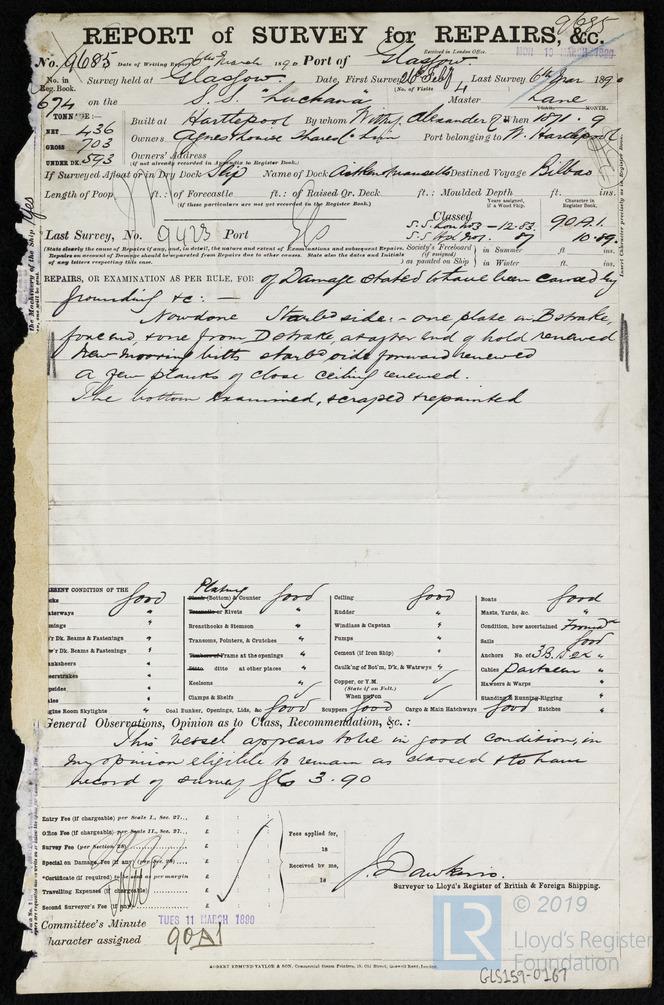 9685
REPORT of SURVEY for REPAIRS, &c.
Received in London Office.
MON 10 MARCH 1890
No. 9685 Date of Writing Report 6th March 1890 Port of Glasgow
No. in Reg. Book. Survey held at Glasgow. Date, First Survey 26 Feby Last Survey 6th Mar 1890
(No. of Visits 4)
674 on the S.S. "Luchana" Master Lane
TONNAGE:—
NET 436
GROSS 703
UNDER DK. 593
YEAR. MONTH.
Built at Hartlepool By whom Withy, Alexander & Co When 1871 . 9
Owners Port belonging to W. Hartlepool
Owners' Address
(if not already recorded in Appendix to Register Book.)
If Surveyed Afloat or in Dry Dock Slip Name of Dock Aitken & Mansell's Destined Voyage Bilbao
Length of Poop ft.: of Forecastle ft.: of Raised Qr. Deck ft.: Moulded Depth ft. ins.
(if these particulars are not yet recorded in the Register Book.)
Years assigned, if a Wood Ship. Character in Register Book.
Last Survey, No. 9423 Port Gls
Classed 90A.1.
S.S. Lon No3 - 12.83.
S.S. No1. 87 10.89.
(State clearly the cause of Repairs if any, and, in detail, the nature and extent of Examinations and subsequent Repairs. Repairs on account of Damage should be separated from Repairs due to other causes. State also the dates and Initials of any letters respecting this case.
Society's Freeboard (if assigned) as painted on Ship in Summer ft. ins.
in Winter ft. ins.
REPAIRS, OR EXAMINATION AS PER RULE, FOR of Damage stated to have been caused by
grounding &c: —
Now done Starbd side:- one plate in B strake,
fore end, & one from D strake, at after end of hold renewed
New mooring bitts starbd side forward renewed
A few planks of close ceiling renewed.
The bottom examined, scraped & repainted
PRESENT CONDITION OF THE
Decks Good
Waterways "
Dk. Beams & Fastenings "
Dk. Beams & Fastenings "
Engine Room Skylights "
Plating
Planks (Bottom) & Counter Good
Treenails or Rivets "
Breasthooks & Stemson "
Transoms, Pointers, & Crutches "
Timbers of Frame at the openings "
Ditto ditto at other places "
Keelsons "
Clamps & Shelfs
Coal Bunker, Openings, Lids, &c Good
Ceiling Good
Rudder "
Windlass & Capstan "
Pumps "
Cement (if Iron Ship) "
Caulk'g of Bot'm, D'k, & Watrwys "
Copper, or Y.M.
(State if on Felt.)
When put on
Scuppers Good
Cargo & Main Hatchways Good
Boats Good
Masts, Yards, &c. "
Condition, how ascertained
Sails Good
Anchors No. of
Cables Part seen "
Hawsers & Warps "
Standing & Running Rigging "
Hatches "
General Observations, Opinion as to Class, Recommendation, &c.:
This vessel appears to be in good condition, in
my opinion eligible to remain as classed & to have
record of survey Gls 3.90
Entry Fee (if chargeable) per Scale I., Sec. 27... £ : :
Office Fee (if chargeable) per Scale II., Sec. 27... £ : :
Survey Fee (per Section 28) £ : :
Special on Damage Fee (if any) (per Sec. 28) £ : :
*Certificate (if required) to be sent as per margin £ : :
Travelling Expenses (if chargeable) £ : :
Second Surveyor's Fee (if any) £ : :
Fees applied for,
18
Received by me,
18
J. Dawkins.
Surveyor to Lloyd's Register of British & Foreign Shipping.
Committee's Minute TUES 11 MARCH 1890
Character assigned 90A1
ROBERT EDMUND TAYLOR & SON, Commercial Steam Printers, 19, Old Street, Goswell Road, London.
LR
© 2019
Lloyd's Register
Foundation
GLS159-0167